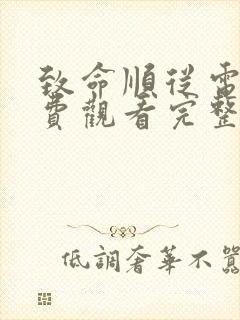 致命順從電
費觀看完整
低調奢華不囂